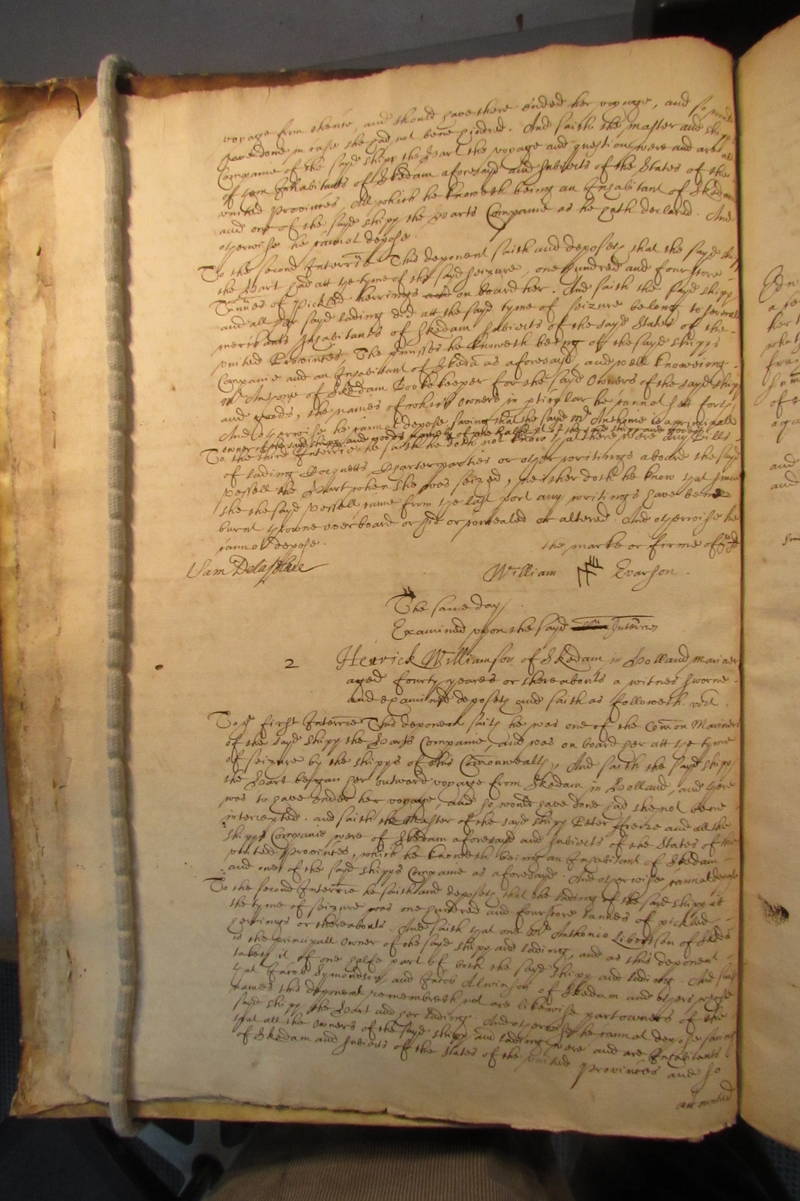 voyage from thence, and should have there ended her voyage, and so would
have done in case she had not beene hindred. And saith the master and shipps
Companie of the sayd shipp the Hart the voyage and question were and are all
of them Inhabitants of Skedam aforesayd and Subiects of the States of the
united Provinces, All which he knoweth being an Inhabitant of Skedam
and one of the sayd shipp the Harts Companie as he hath declared. And
otherwise he cannot depose.
To the second Interrie This deponent saith and deposeth that the sayd shipp
the Hart had att the tyme of the sayd seizure, one hundred and fourscore
Tunnes of Pickled herrings on board her. And saith the sayd shipp
and all her sayd lading did att the sayd tyme of seizure belong to severall
merchants Inhabitants of Skedam subiects of the sayd States of the
united Provinces, The premisses he knoweth being of the sayd shipps
Companie and an Inhabitant of Skedam as aforesayd, and well knoweing
Mr Anthone of Skedam Bookekeeper for the sayd Owners of the sayd shipp
and goods, the names of which owners in pticular he cannot sett forth
And otherwise he cannot depose saving that the sayd Mr Anthonie is a principall
owner of the sayd shipp and goods of one halfe of the sayd shipp and goods
To the third Interrie he saith he doth not know that there were any Bills
of lading Cocquetts Charterparties or other writings aboard the sayd
vessell the Hart when she was seized, neither doth he know that since
the the sayd vessell came from the last port any writings have beene
burnt throwne overboard or hid or concealed or altered. And otherwise he
cannot depose.
the marke or firme of the sd
Sam Delaplace
William Evarson
The same day.
Examined upon the sayd Interries
2 Henrick Williamson of Skedam in Holland mariner
aged fourty yeares or thereabouts a witnes sworne
and examined deposeth and saith as followeth vizt.
To the first Interrie This deponent saith he was one of the Common Mariners
of the sayd shipp the Harts Companie, and was on board her att the tyme
of seizure by the shipps of this Comonwealth, And saith the sayd shipp
the Hart began her outward voyage from Skedam in Holland, and there
was to have ended her voyage and so would have done had she not beene
intercepted. and saith the Master of the sayd shipp Peter and all the
shipps Companie were of Skedam aforesayd and Subiects of the States of the
united Provinces, which he knoweth being an Inhabitant of Skedam
and one of the sayd shipps Companie as aforesayd. And otherwise cannot depose
To the second Interrie he saith and deposeth that the lading of the sayd shipp at
the tyme of seizure was one hundred and fourscore tunnes of pickled
herrings or thereabouts. And saith that one Mr Anthonio Libertson of Skedam
is the principall owner of the sayd shipp and lading, and as this deponent
taketh it of one halfe part of both the sayd shipp and lading. And saith
that Jacob Symondson and Jacob Allwinson of Skedam and others whose
names this deponent remembreth not are likewise partowners of the
sayd shipp the Hart and her lading. And otherwise he cannot depose saving
that all the owners of the sayd shipp and lading were and are Inhabitants
of Skedam and Subiects of the States of the united Provinces and so
accounted